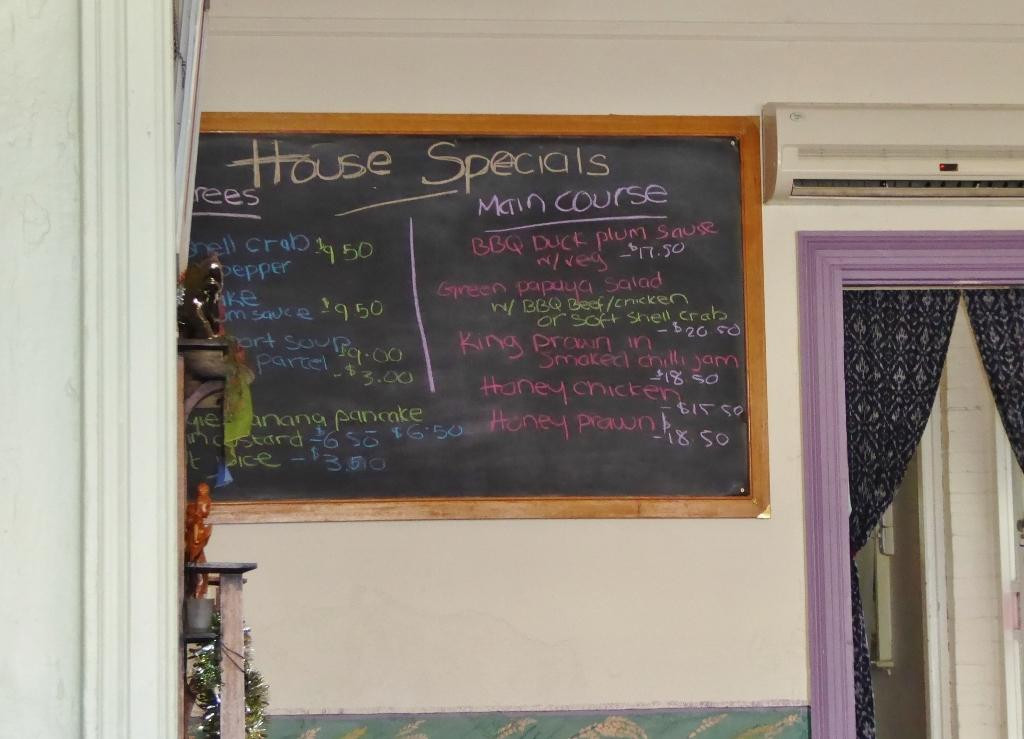 House Specials
rees
shell crab $9.50
pepper
ke
m sauce $9.50
ort soup
parcel $9.00
- $3.00
anang pancake
custard - 6 50 $6.50
ice - $3.50
Main course
BBQ Duck plum sause
w/veg - $17.50
Green papaya salad
w/ BBQ Beef/chicken
or soft shell crab
- $20 50
King prawn in
smoked chilli jam
- $18 50
Honey chicken
- $15 50
Honey prawn
- $18 50